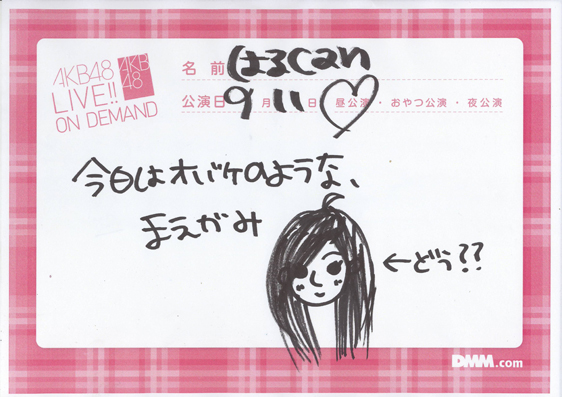 AKB48
LIVE!!
ON DEMAND
AKB
48
名前 はるcan
公演日 9月11日 昼公演・おやつ公演・夜公演
今日はオバケのような、
まえがみ
←どう??
DMM.com